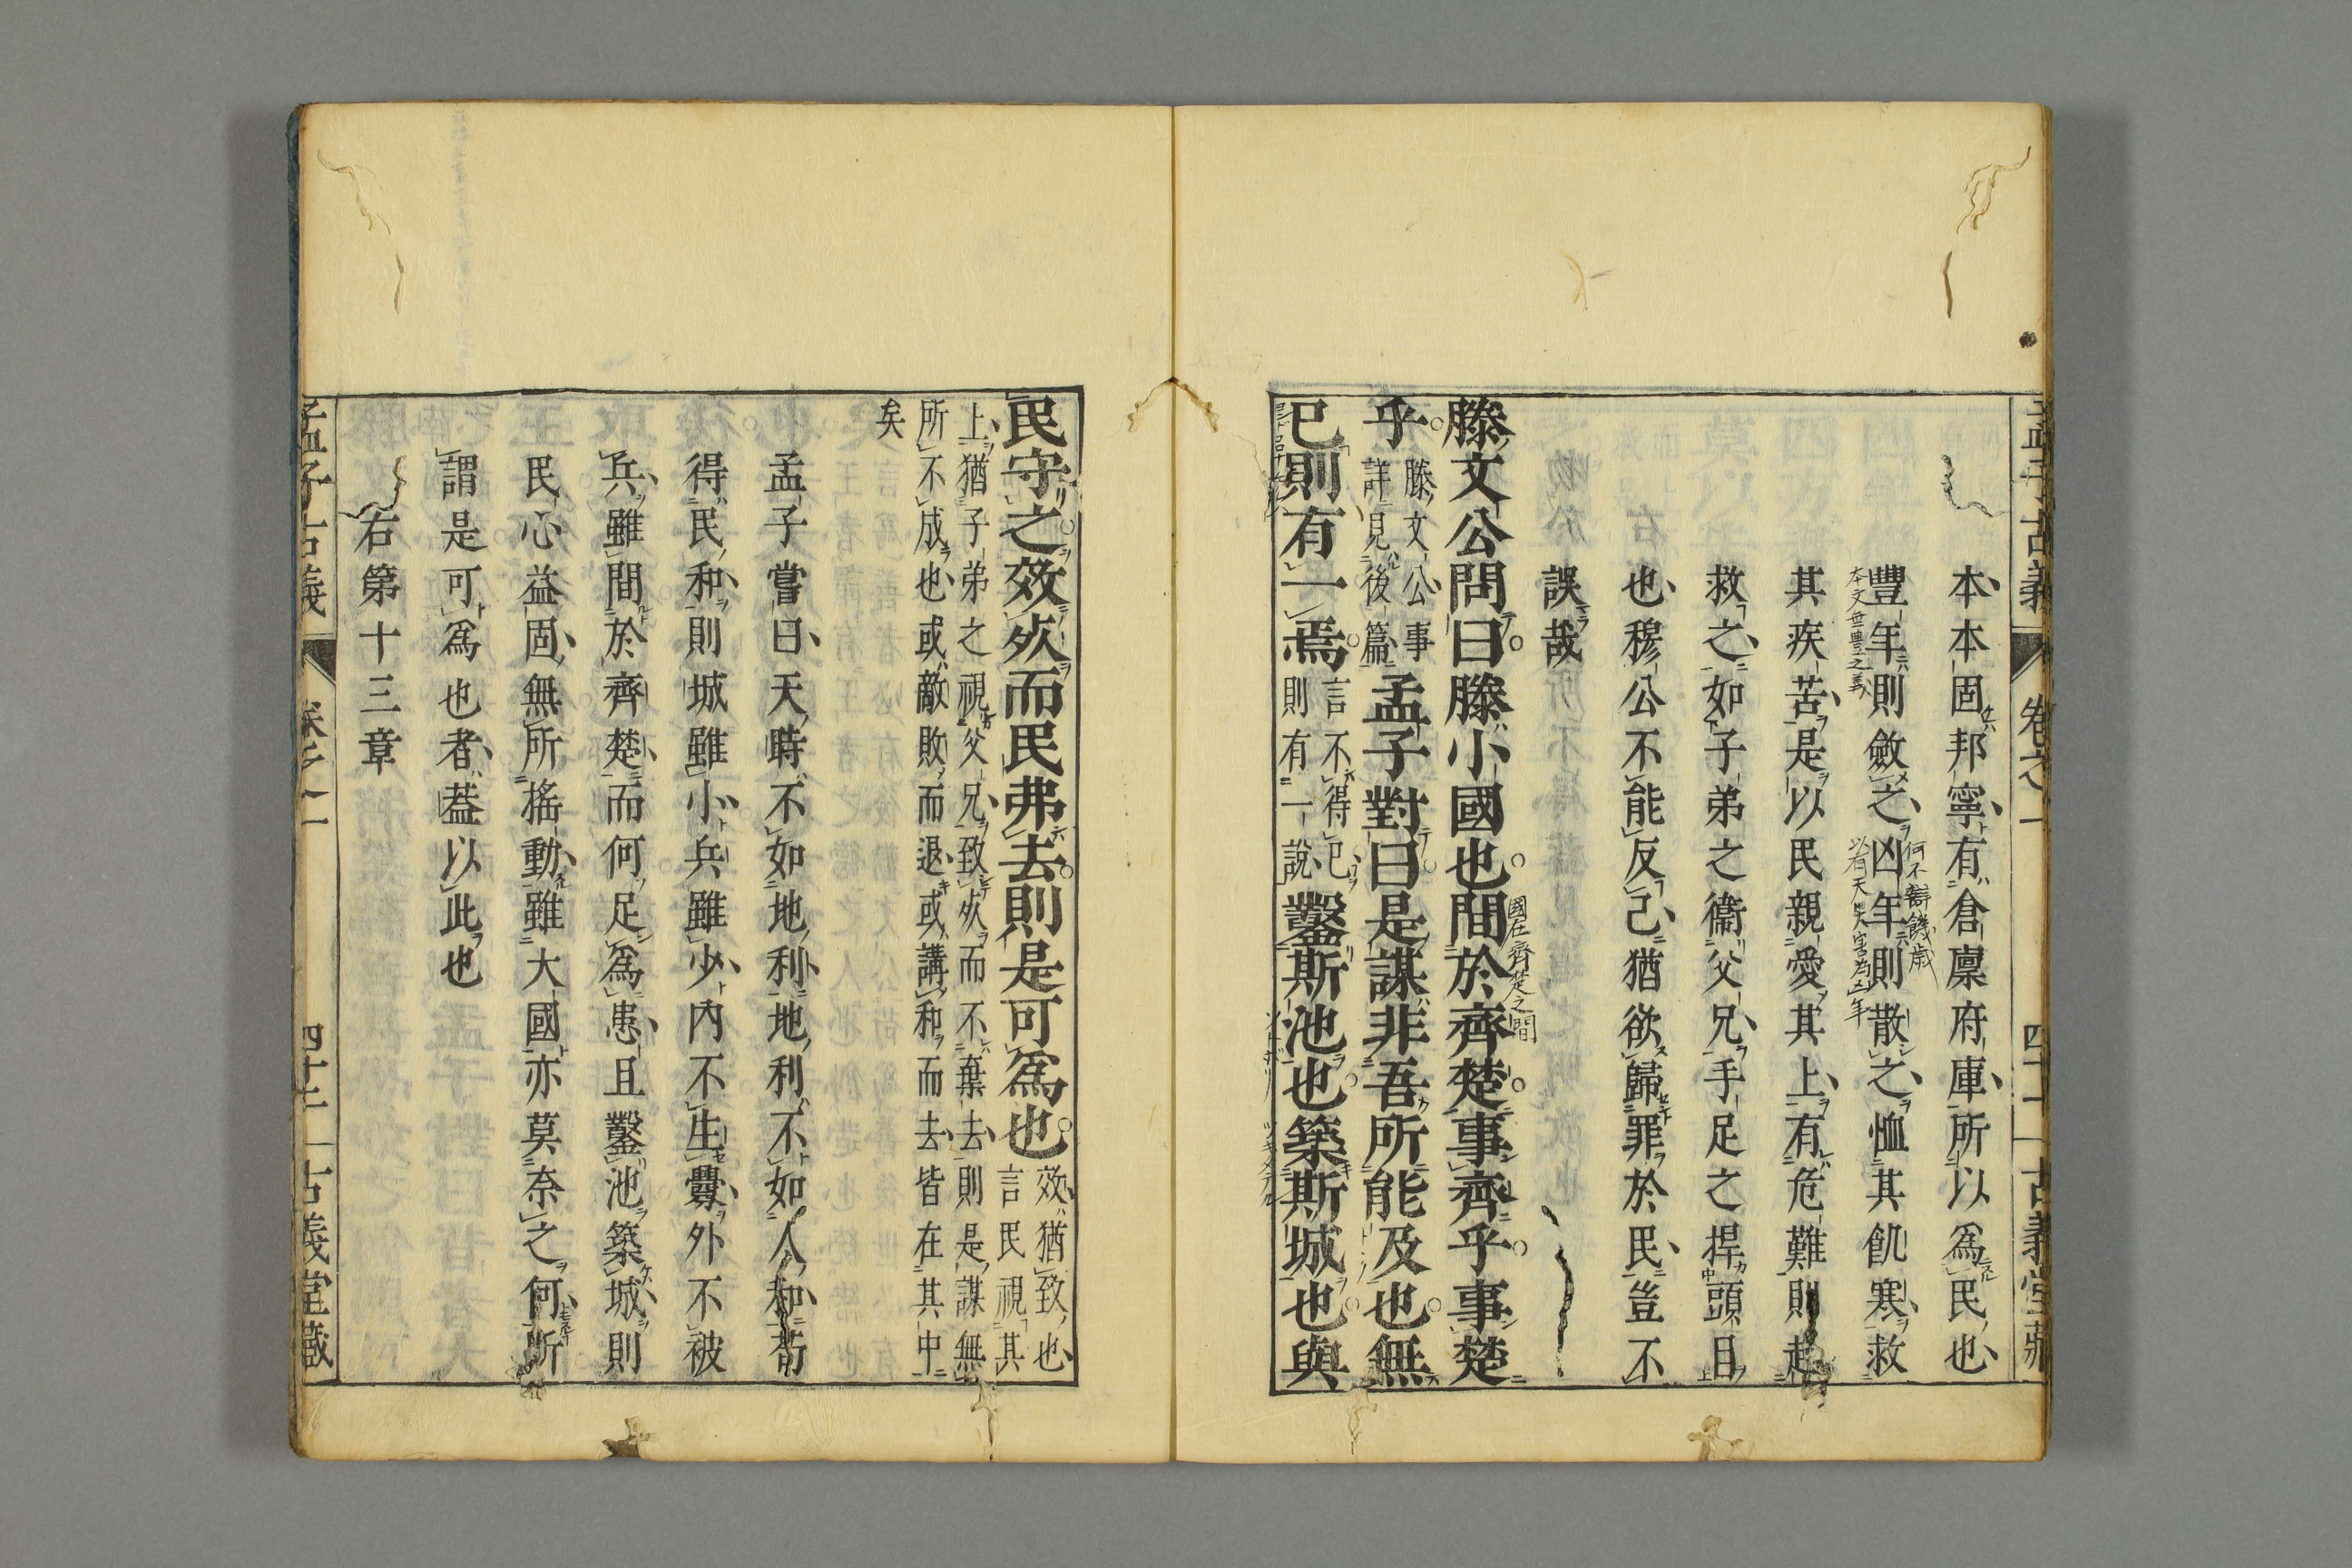 本本固邦寧有倉廩府庫所以爲民也
豐年則斂之凶年則散之恤其飢寒救
其疾苦是以民親愛其上有危難則赴
救之如子弟之衞父兄手足之捍頭目
也穆公不能反己猶欲歸罪於民豈不
誤哉
滕文公問曰滕小國也間於齊楚事齊乎事楚
國在齊楚之間
乎
滕文公事
詳見後篇
孟子對曰是謀非吾所能及也無
已則有一焉
言不得已
則有一說
鑿斯池也築斯城也與
孟子古義
卷之一
古義堂藏
本文無豊之義
民守之效死而民弗去則是可爲也
效猶致也
言民視其
上猶子弟之視父兄致死而不棄去則是謀無
所不成也或敵敗而退或講和而去皆在其中
矣
孟子嘗曰天時不如地利地利不如人和苟
得民和則城雖小兵雖少内不生釁外不被
兵雖間於齊楚而何足爲患且鑿池築城則
民心益固無所搖動雖大國亦莫奈之何所
謂是可爲也者蓋以此也
右第十三章
孟子古義
卷之一
古義堂藏